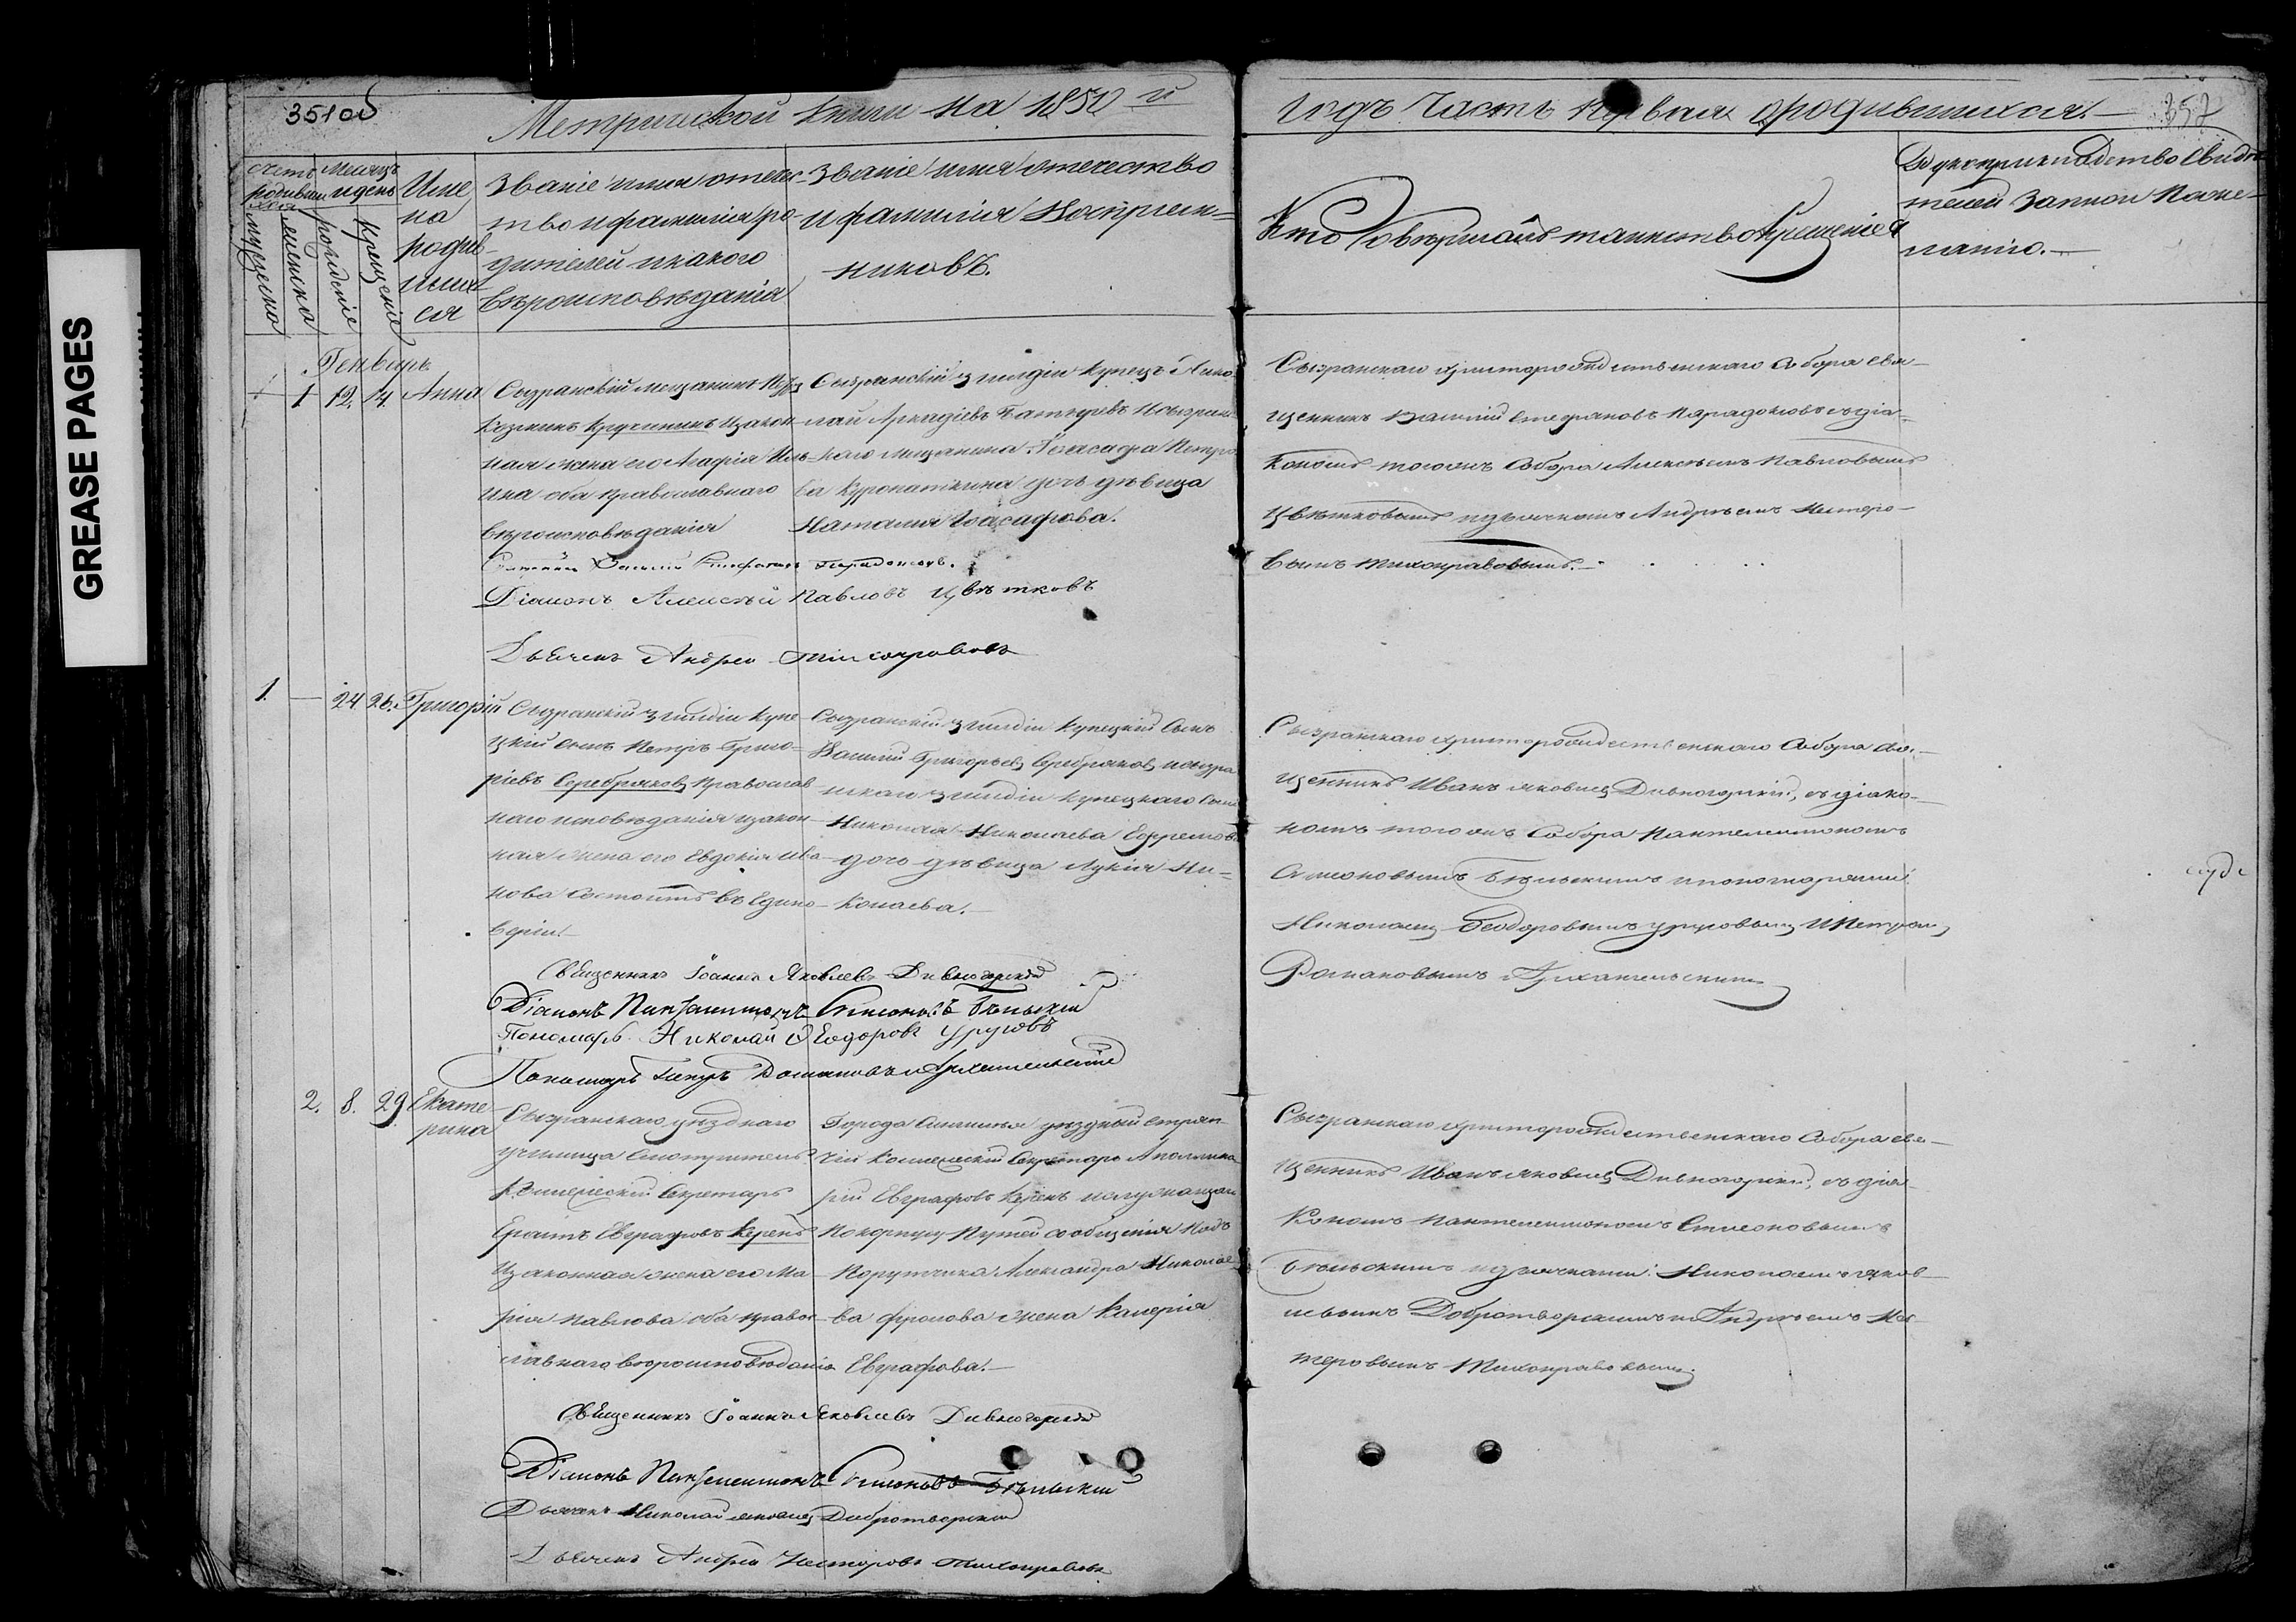 GREASE PAGES
351об
Метрической книги на 1850 й
годъ часть первая о родившихся.
357
Счетъ родившихся
мужеска
женска
Месяцъ и день
рожденiе
крещенiя
Име
на
родив
шихся
Званiе имя отечес-
тво и фамилiя ро-
дителей и какого
вѣроисповѣданiя
Званiе имя отечество
и фамилiя восприем-
никовъ.
Кто совершалъ таинство крещенiя
Рукоприкладство свидѣ
телей записи по же-
ланiю.
Генварь
1 12. 14. Анна
Сызранскiй мещанинъ Петръ
Козминъ Кручининъ и закон-
ная жена его Агафiя
оба православнаго
вѣроисповѣданiя
Сызранскiй 3 гилдiи купецъ Нико
лай Аркадiевъ и сызран
скаго мещанина Иоасафа Петро
ва Куропаткина дочь дѣвица
Наталия Иоасафова.
Сызранскаго христорождественскаго Собора свя-
щенникъ Василiй Стефановъ Парадоксовъ съ дiа-
кономъ тогожъ Собора Алексѣемъ Павловымъ
Цвѣтковымъ и дьячкомъ Андрѣемъ Несторо-
вымъ Тихонравовымъ.
Священникъ Василий Стефановъ Парадоксовъ.
Дiаконъ Алексѣй Павловъ Цвѣтковъ
Дьячекъ Андрей Тихонравовъ
1. — 24 26. Григорiй
Сызранскiй 3 гилдiи купе-
цкiй сынъ Петръ Григо-
рiевъ Серебряковъ православ
наго исповѣданiя и закон-
ная жена его Евдокiя Ива-
нова состоитъ въ Едино-
верiи.
Сызранскiй 3 гилдiи купецкiй сынъ
Василiй Григорьевъ Серебряковъ и сызра
нскаго 3 гилдiи купецкаго сына
Николая Николаева Ефремова
дочь дѣвица Лукiя Ни-
колаева.
Сызранскаго христорождественскаго Собора свя-
щенникъ Иванъ Яковлевъ Дивногорскiй, съ дiако-
номъ тогожъ Собора Пантелеимономъ
Симеоновымъ Бѣльскимъ и пономарями
Николаемъ Феодоровымъ Урусовымъ и Петромъ
Романовымъ Архангельскимъ
Священникъ Iоаннъ Яковлевъ Дивногорскiй
Дiаконъ Пантелеимонъ Симеоновъ Бѣльскiй
Пономарь Николай Феодоровъ Урусовъ
Пономарь Петръ Романовъ Архангельскiй
2. 8. 29 Екате
рина
Сызранскаго уѣзднаго
училища смотритель
Коллежскiй Секретарь
Евграфовъ Керенъ
и законная жена его Ма-
рiя Павлова оба правос-
лавнаго вѣроисповѣданiя
Города уѣздный стряп-
чiй Коллежскiй Секретарь Аполлина
рiй Евграфовъ Керенъ и служащаго
по корпусу Путей сообщенiя Под
Порутчика Александра Николае-
ва Фролова жена Валерiя
Евграфова.
Сызранскаго христорождественскаго Собора свя-
щенникъ Иванъ Яковлевъ Дивногорскiй, съ дiа-
кономъ Пантелеимономъ Симеоновымъ
Бѣльскимъ и дьячками: Николаемъ Яков-
левымъ Добротворскимъ и Андрѣемъ Нес-
теровымъ Тихонравовымъ
Священникъ Iоаннъ Яковлевъ Дивногорскiй
Дiаконъ Пантелеимонъ Симеоновъ Бѣльскiй
Дьячекъ Николай Яковлевъ Добротворскiй
Дьячекъ Андрей Несторовъ Тихонравовъ